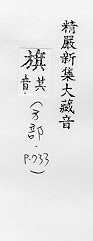 精嚴新集大藏音
旗其
音.
(方部.
P.733